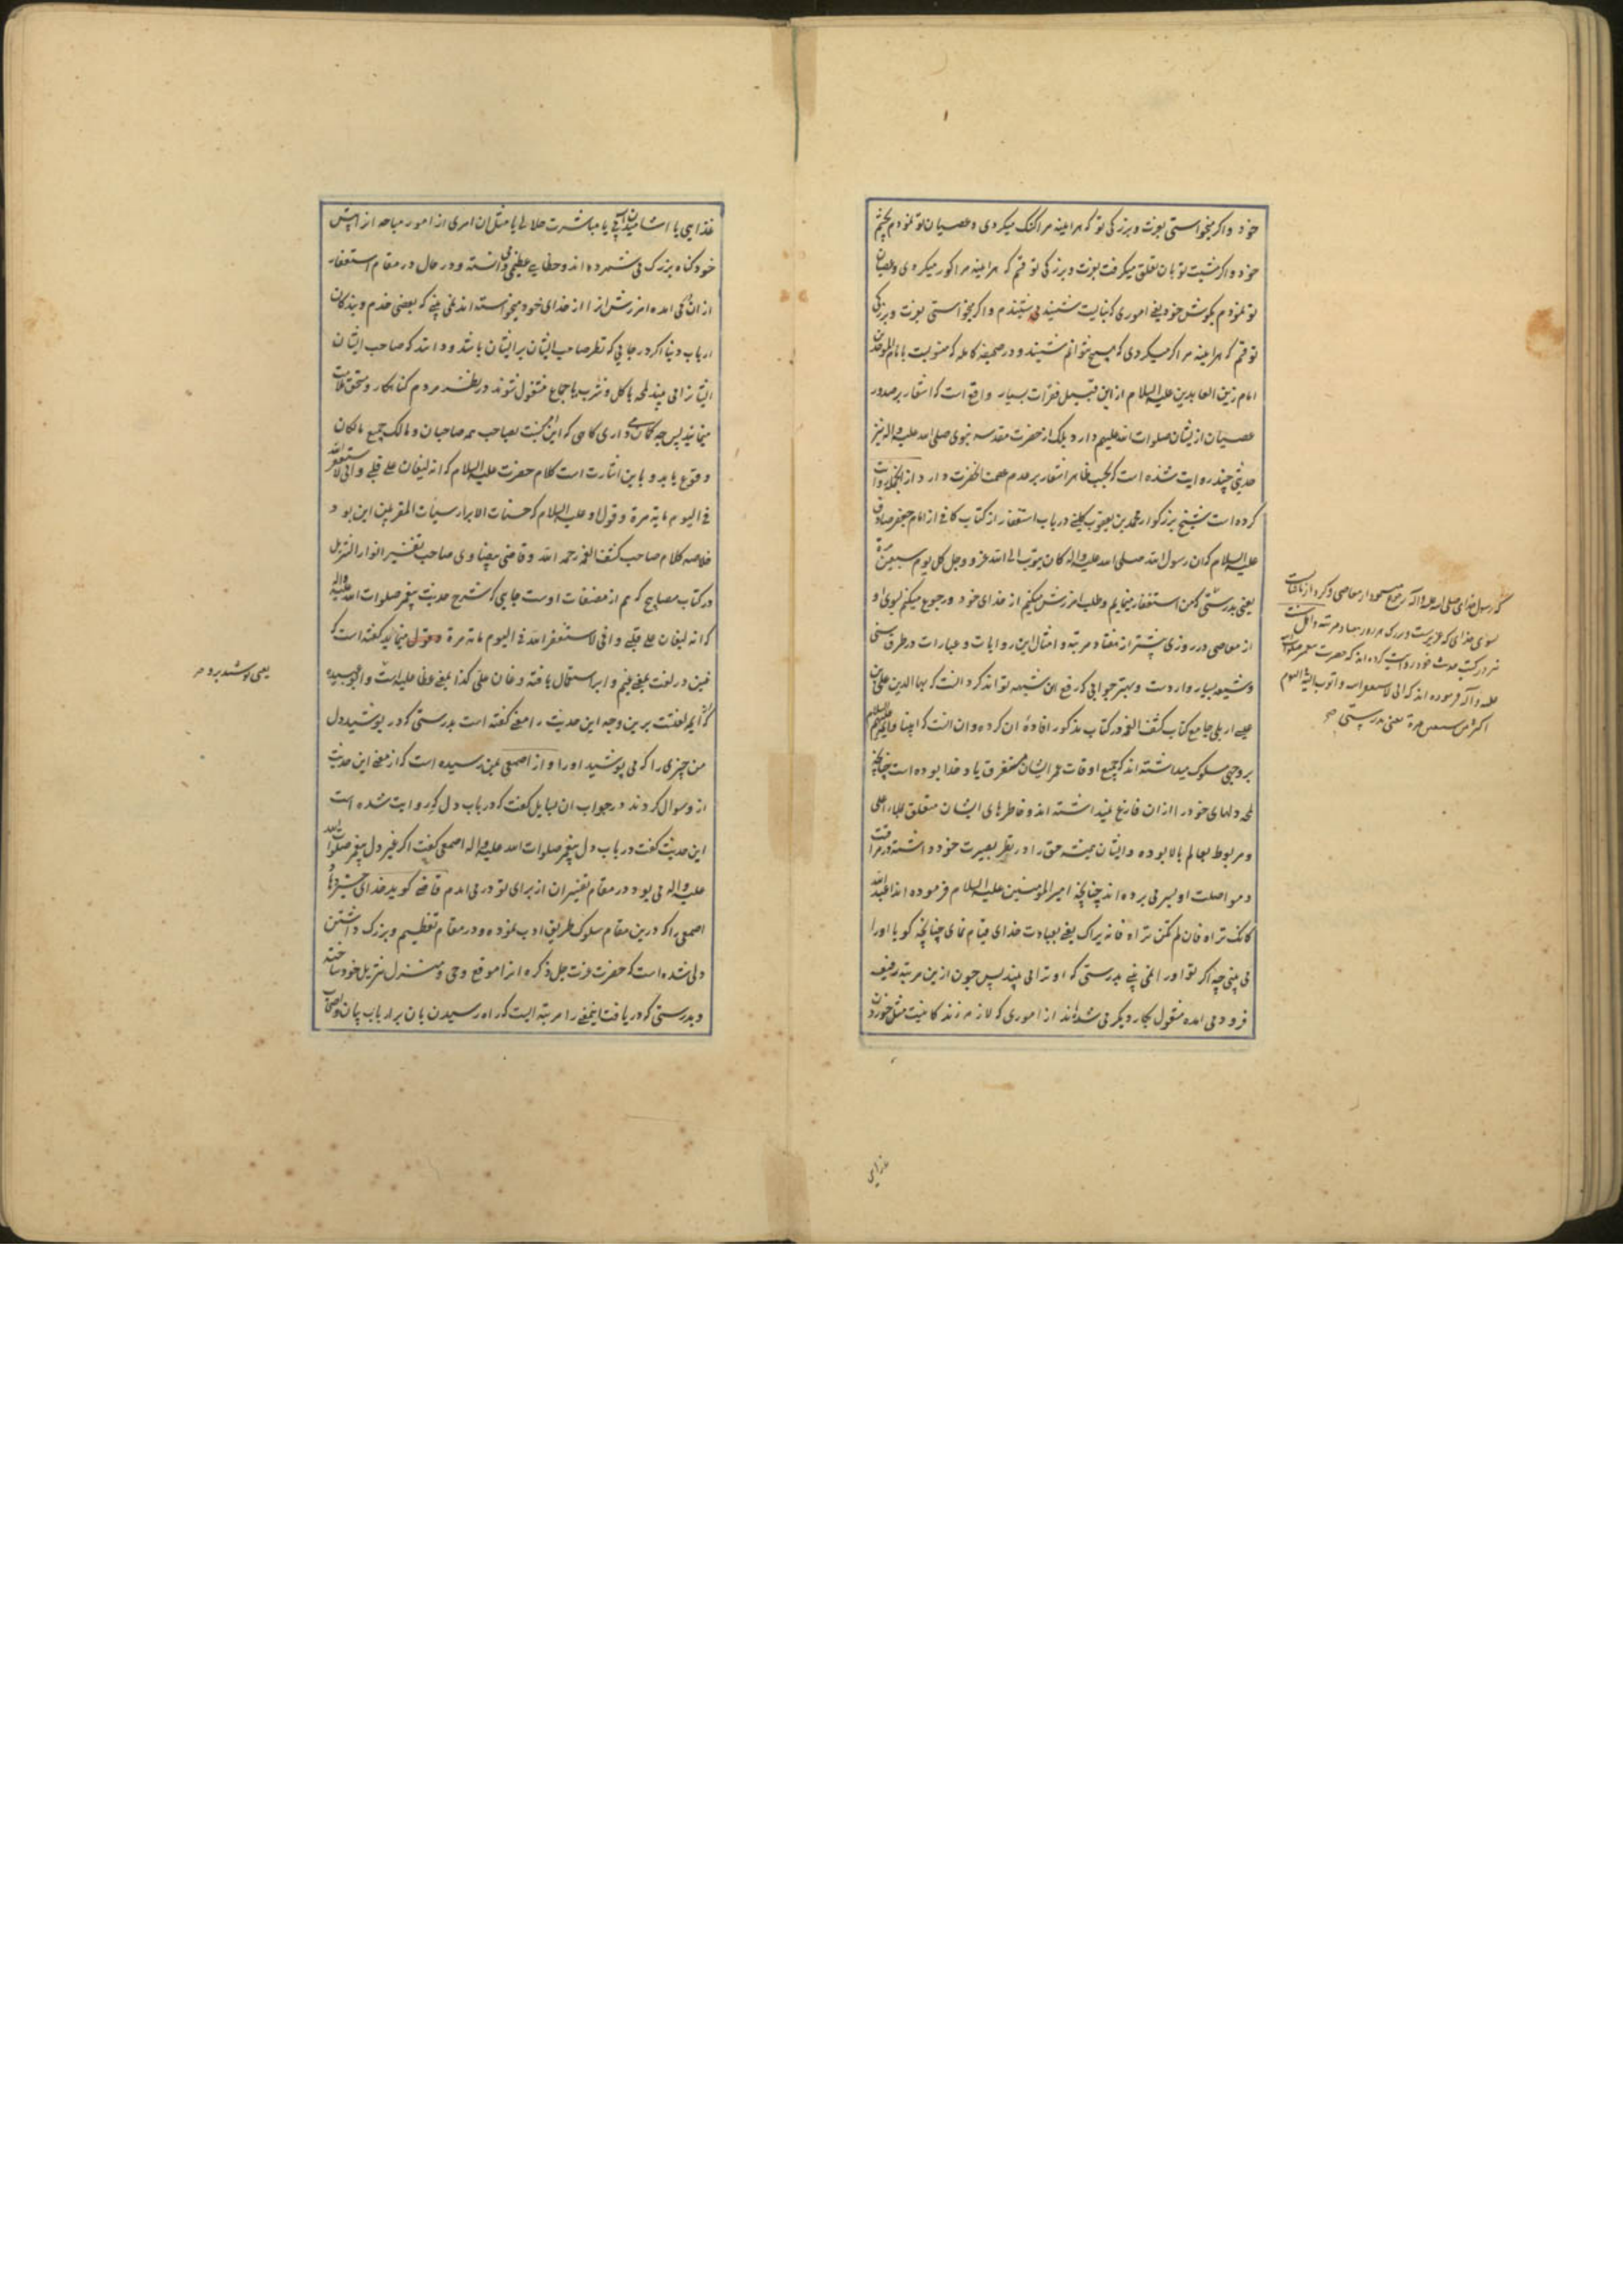 خود و اگر میخواستی بعزت و بزرگی تو که هرآینه مرا گنگ میکردی و عصیان تو نمودم بچشم
خود و اگر مشیت تو بان تعلق میگرفت بعزت و بزرگی تو قسم که هرآینه مرا کور میکردی و عصیان
تو نمودم بگوش خود یعنی اموری که نبایست شنید می شنیدم و اگر میخواستی بعزت و بزرگی
تو قسم که هرآینه مرا کر میکردی که هیچ نتوانم شنید و در صحیفه کامله که منسوبست بامام الموحدین
امام زین العابدین علیه السلام از این قبیل فقرات بسیار واقع است که اشعار بر صدور
عصیان ازیشان صلوات الله علیهم دارد بلکه از حضرت مقدسه نبوی صلی الله علیه واله نیز
حدیثی چند روایت شده است که بحسب ظاهر اشعار بر عدم عصمت آنحضرت دارد از آنجمله روایت
کرده است شیخ بزرگوار محمد بن یعقوب کلینی در باب استغفار از کتاب کافی از امام جعفر صادق
علیه السلام که ان رسول الله صلی الله علیه واله کان یتوب الی الله عز و وجل کل یوم سبعین مرة
یعنی بدرستی که من استغفار مینمایم و طلب امرزش میکنم از خدای خود و رجوع میکنم بسوی او
از معاصی در روزی پیشتر از هفتاد مرتبه و امثال این روایات و عبارات در طرق سنی
و شیعه بسیار واردست و بهترجوابی که رفع این شبهه تواند کرد آنست که بهاالدین علی بن
عیسی اربلی جامع کتاب کشف الغمه در کتاب مذکور افاده ان کرده و ان انست که انبیا و ائمه علیهم السلام
بر وجهی سلوک میداشته اند که جمیع اوقات عمر ایشان مستغرق یاد خدا بوده است چنانچه
لمحه دلهای خود را ازان فارغ نمیداشته اند و خاطرهای ایشان متعلق بملاء اعلی
و مربوط بعالم بالا بوده و ایشان همیشه حق را در نظر بصیرت خود داشته در مراقبت
و مواصلت او بسر می برده اند چنانچه امیرالمومنین علیه السلام فرموده اند اعبد الله
کانک تراه فان لم تکن تراه فانه یراک یعنی بعبادت خدای قیام نمای چنانچه گویا او را
می بینی چه اگر تو او را نمی بینی بدرستی که او ترا می بیند پس چون ازین مرتبه رفیعه
فرود می امده مشغول بکار دیگر می شده اند از اموری که لازمه زندگانیست مثل خوردن
غذایی
که رسول خدای صلی الله علیه واله رجوع میـنمود از معاصی
بسوی خدای که عزیزست و بزرگ هر روز هفتاد مرتبه و اهل سنت
نیز در کتب حدیث خود روایت کرده اند که حضرت پیغمبر صلوات الله
علیه واله فرموده اند که انی لاستغفر الله و اتوب الیه فی الیوم
اکثر من سبعین مرة یعنی بدرستی
غذایی یا اشامیدن ابی یا مباشرت حلالی یا مثل ان امری از امور مباحه از پیش
خود گناه بزرگ می شمرده اند و خطایی عظیمی می دانسته و در حال در مقام استغفار
ازان می امده امرزش انرا از خدای خود میخواسته اند نمی بینی که بعضی خدم و بندگان
ارباب دنیا اگر در جایی که نظر صاحب ایشان بر ایشان باشد و داند که صاحب ایشان
ایشانرا می بیند لمحه باکل و شرب یا جماع مشغول شوند در نظر مردم گناهکار و مستحق ملامت
مینمایند پس چه گمان داری گاهی که این امر نسبت بصاحب همه صاحبان و مالک جمیع مالکان
وقوع یابد و باین اشارت است کلام حضرت علیه السلام که انه لیغان علی قلبی و انی لاستغفر الله
فی الیوم مایة مرة و قول او علیه السلام که حسنات الابرار سیئات المقربین این بود
خلاصه کلام صاحب کشف الغمه رحمه الله و قاضی بیضاوی صاحب تفسیر انوار التنزیل
در کتاب مصابیح که هم از مصنفات اوست جایی که شرح حدیث پیغمبر صلوات الله علیه واله
که انه لیغان علی قلبی و انی لاستغفر الله فی الیوم مایة مرة مینماید گفته است که
غین در لغت بمعنی غیم و ابر استعمال یافته و غان علی کذا بمعنی غطا علیه است و ابو عبیده
که از ایمه لغتست برین وجه این حدیث را معنی گفته است بدرستی که در پوشید دل
من چیزی را که می پوشید او را و از اصمعی بمن رسیده است که از معنی این حدیث
ازو سوال کردند در جواب ان سایل گفت که در باب دل که روایت شده است
این حدیث گفت در باب دل پیغمبر صلوات الله علیه واله اصمعی گفت اگر غیر دل پیغمبر صلوات الله
علیه واله می بود در مقام تفسیر ان از برای تو در می امدم قاضی گوید خدای خیر دهاد
اصمعی را که درین مقام سلوک طریق ادب نموده و در مقام تعظیم و بزرگ داشتن
دلی شده است که حضرت عزت جل ذکره انرا موقع وحی و منزل تنزیل خود ساخته
و بدرستی که دریافت اینمعنی را مرتبه ایست که راه رسیدن بان بر ارباب
یعنی پوشید برو